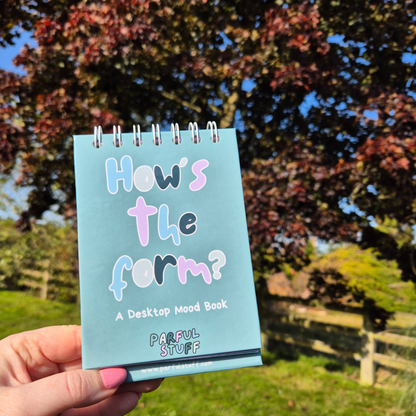 How's
the
form?
A Desktop Mood Book
PARFUL
STUFF